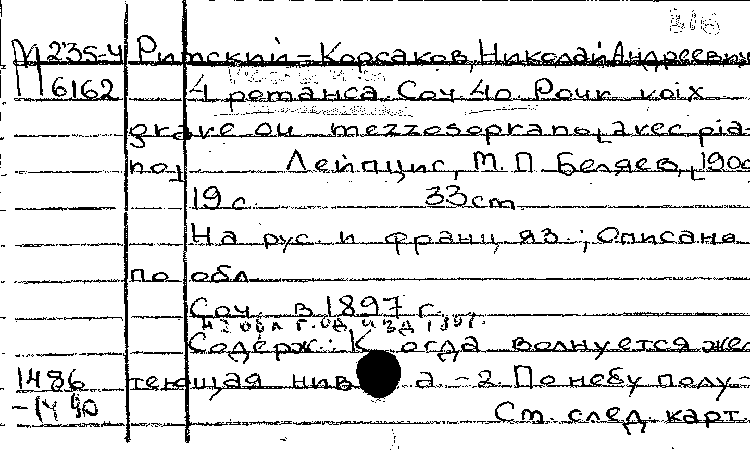 М 235-4 Римский-Корсаков, Николай Андреевич
6162 4 романса. Соч 40. Pour voix
grave ou mezzosoprano [avec pia-
no] Лейпциг, М. П. Беляев, [190
19 с. 33 cm
На рус. и франц. яз.; Описана
по обл
Соч. в 1897 г.
на обл г. од. изд
Содерж.: Когда волнуется жел
1486 теющая нива - 2. По небу полу-
-1490 См. след. карт.